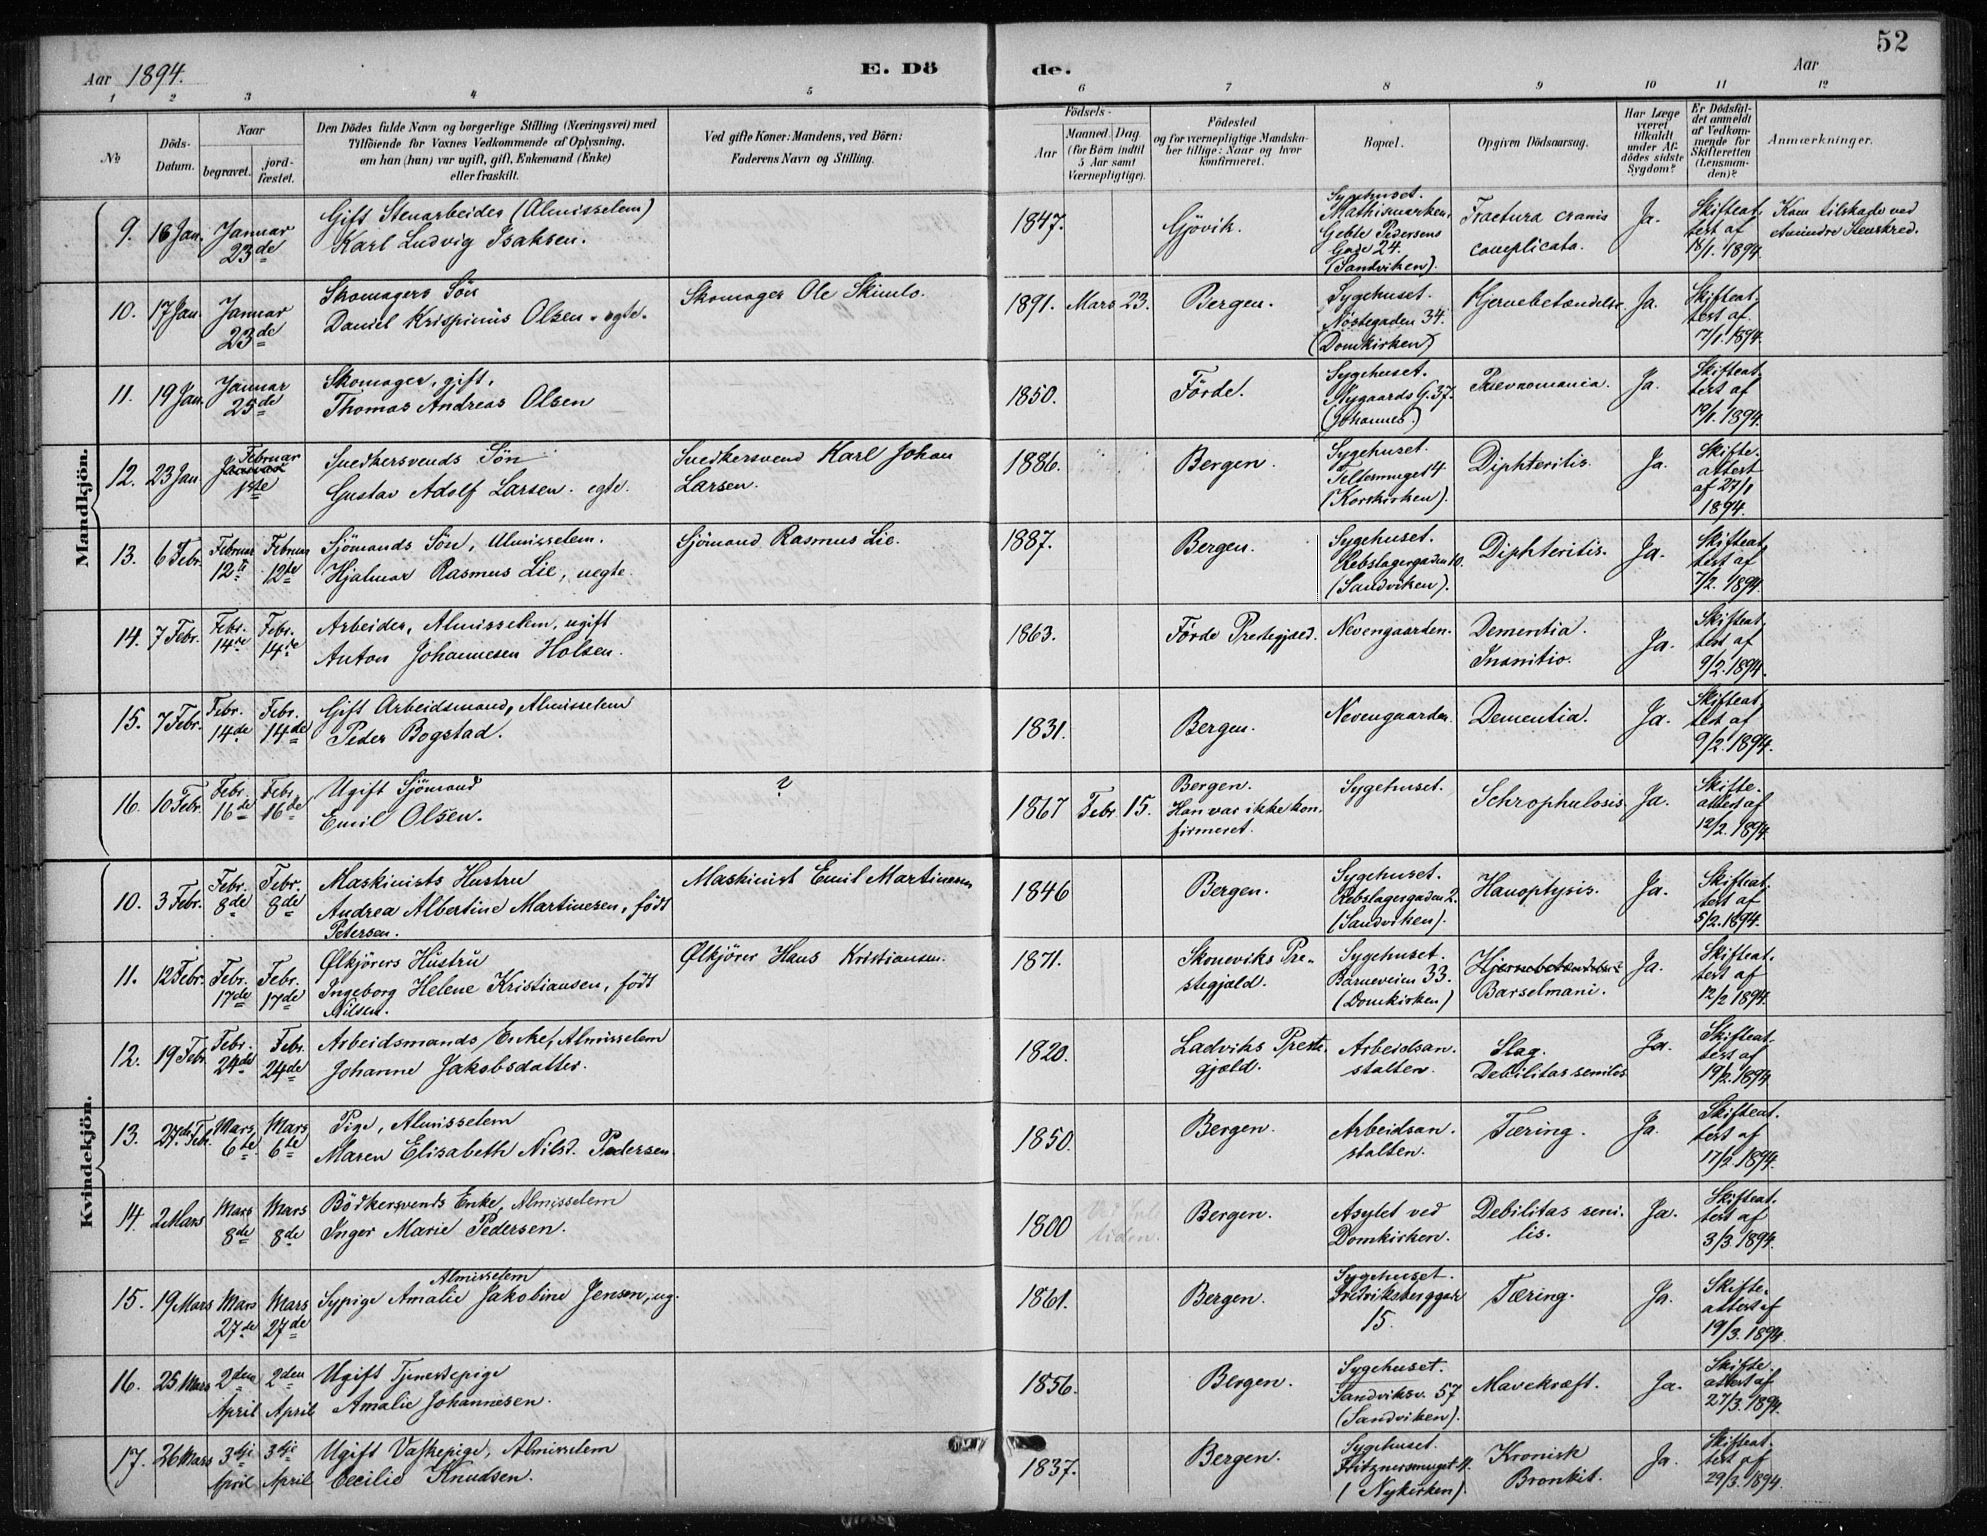 52
Aar 1894.
E. Dö
de.
Aar
1 2 3 4 5 6 7 8 9 10 11 12
No
Döds-Datum.
Naar
begravet.
jord-fæstet.
Den Dödes fulde Navn og borgerlige Stilling (Næringsvei) med
Tilföiende for Voxnes Vedkommende af Oplysning,
om han (hun) var ugift, gift, Enkemand (Enke)
eller fraskilt.
Ved gifte Koner: Mandens, ved Börn:
Faderens Navn og Stilling.
Födsels-
Aar
Maaned.
Dag.
(for Börn indtil
5 Aar samt
Værnepligtige).
Födested
og for værnepligtige Mandska-
ber tillige: Naar og hvor
konfirmeret.
Bopæl.
Opgiven Dödsaarsag.
Har Læge
været
tilkaldt
under Af-
dödes sidste
Sygdom?
Er Dödsfal-
det anmeldt
af Vedkom-
mende for
Skifteretten
(Lensman-
den)?
Anmærkninger.
Mandkjön.
9. 16 Jan. Januar 23de
Gift Stenarbeider (Almisselem)
Karl Ludvig Isaksen.
1847.
Gjövik.
Sygehuset.
Mathismarken,
Geble Pedersens
Gade 24.
(Sandviken).
Fractura cranis
complicata.
Ja.
Skifteat-
test af
18/1. 1894.
Kom tilskade ved
Stenskred.
10. 17 Jan. Januar 23de
Skomagers Sön
Daniel Krispinus Olsen. egte.
Skomager Ole
1891. Mars 23.
Bergen.
Sygehuset.
Nöstegaden 34.
(Domkirken)
Hjernebetændelse.
Ja.
Skifteat-
test af
17/1. 1894.
11. 19 Jan. Januar 25de
Skomager, gift,
Thomas Andreas Olsen
1850.
Förde.
Sygehuset.
Nygaards G. 37.
(Johannes.)
Pnevnomania.
Ja.
Skifteat-
test af
19/1. 1894.
12. 23 Jan. Februar
Januar
1ste
Snedkersvends Sön
Gustav Adolf Larsen. egte.
Snedkersvend Karl Johan
Larsen.
1886.
Bergen.
Sygehuset.
(Korskirken).
Diphteritis.
Ja.
Skifte-
attest
af 27/1
1894.
13. 6 Febr. Februar 12te Februar 12te
Sjömands Sön, Almisselem.
Hjalmar Rasmus Lie, uegte.
Sjömand Rasmus Lie.
1887.
Bergen.
Sygehuset.
Rebslagergaden 10.
(Sandviken).
Diphteritis.
Ja.
Skifteat-
test af
7/2. 1894.
14. 7 Febr. Febr. 14de Febr. 14de
Arbeider, Almisselem, ugift
Anton Johannesen Holsen.
1863.
Förde Prestegjæld.
Nevengaarden.
Dementia.
Inanitio.
Ja.
Skifteat-
test af
9/2. 1894.
15. 7 Febr. Febr. 14de Febr. 14de
Gift Arbeidsmand, Almisselem
Peder Bogstad.
1831.
Bergen.
Nevengaarden.
Dementia.
Ja.
Skifteat-
test af
9/2. 1894.
16. 10 Febr. Febr. 16de Febr. 16de
Ugift Sjömand
Emil Olsen.
?
1867 Febr. 15.
Bergen.
Han var ikke kon-
firmeret.
Sygehuset.
Schrophulosis.
Ja.
Skifte-
attest af
12/2. 1894.
Kvindekjön.
10. 3 Febr. Febr. 8de Febr. 8de
Maskinists Hustru
Andrea Albertine Martinesen, födt
Petersen.
Maskinist Emil Martinesen
1846
Bergen.
Sygehuset.
Rebslagergaden 2.
(Sandviken).
Hæmoptysis.
Ja.
Skifteat-
test af
5/2. 1894.
11. 12 Febr. Febr. 17de Febr. 17de
Ølkjörers Hustru
Ingeborg Helene Kristiansen, födt
Nilsen.
Ølkjörer Hans Kristiansen.
1871.
Skoneviks Pre-
stegjæld.
Sygehuset.
33.
(Domkirken)
Hjernebetændelse
Barselmani.
Ja.
Skifteat-
test af
12/2 1894.
12. 19 Febr. Febr. 24de Febr. 24de
Arbeidsmands Enke, Almisselem
Johanne Jakobsdatter.
1820.
Ladviks Preste-
gjæld.
Arbeidsan-
stalten.
Slag.
Debilitas senilis
Ja.
Skifteat-
test af
19/2. 1894.
13. 27de Feb. Mars 6te Mars 6te
Pige, Almisselem
Maren Elisabeth Nilsd. Pedersen.
1850.
Bergen.
Arbeidsan-
stalten.
Tæring.
Ja.
Skifteat-
test af
17/2. 1894.
14. 2 Mars Mars 8de Mars 8de
Bödkersvends Enke, Almisselem
Inger Marie Pedersen.
1800
Bergen.
Asylet ved
Domkirken.
Debilitas seni-
lis.
Ja.
Skifteat-
test af
3/3. 1894.
15. 19 Mars Mars 27de Mars 27de
Almisselem
Sypige Amalie Jakobine Jensen, ug.
1861.
Bergen.
Sygehuset.
Fredriksberggade
15.
Tæring.
Ja.
Skifte-
attest af
19/3. 1894.
16. 25 Mars 2den April 2den April
Ugift Tjenestepige
Amalie Johannesen.
1856.
Bergen.
Sygehuset.
Sandviksv. 57
(Sandviken).
Mavekræft.
Ja.
Skifte-
attest af
27/3. 1894.
17. 26 Mars 3dje April 3dje April
Ugift Vaskepige, Almisselem
Cecilie Knudsen.
1837.
Bergen.
Sygehuset.
Fritznersmuget 4.
(Nykirken).
Kronisk
Bronkit.
Ja.
Skifteat-
test af
29/3. 1894.